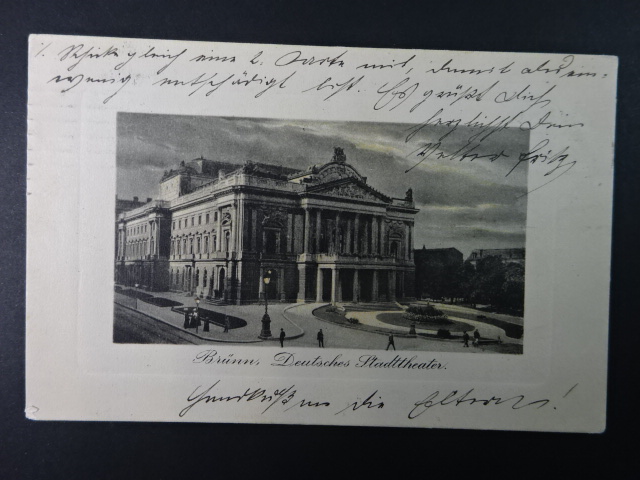 1. Schicke gleich eine 2. Karte mit, damit du ein
wenig entschädigt bist. Es grüßt Dich
herzlichst Dein
Vetter Fritz
Brünn, Deutsches Stadttheater.
Handkuß an die Eltern!